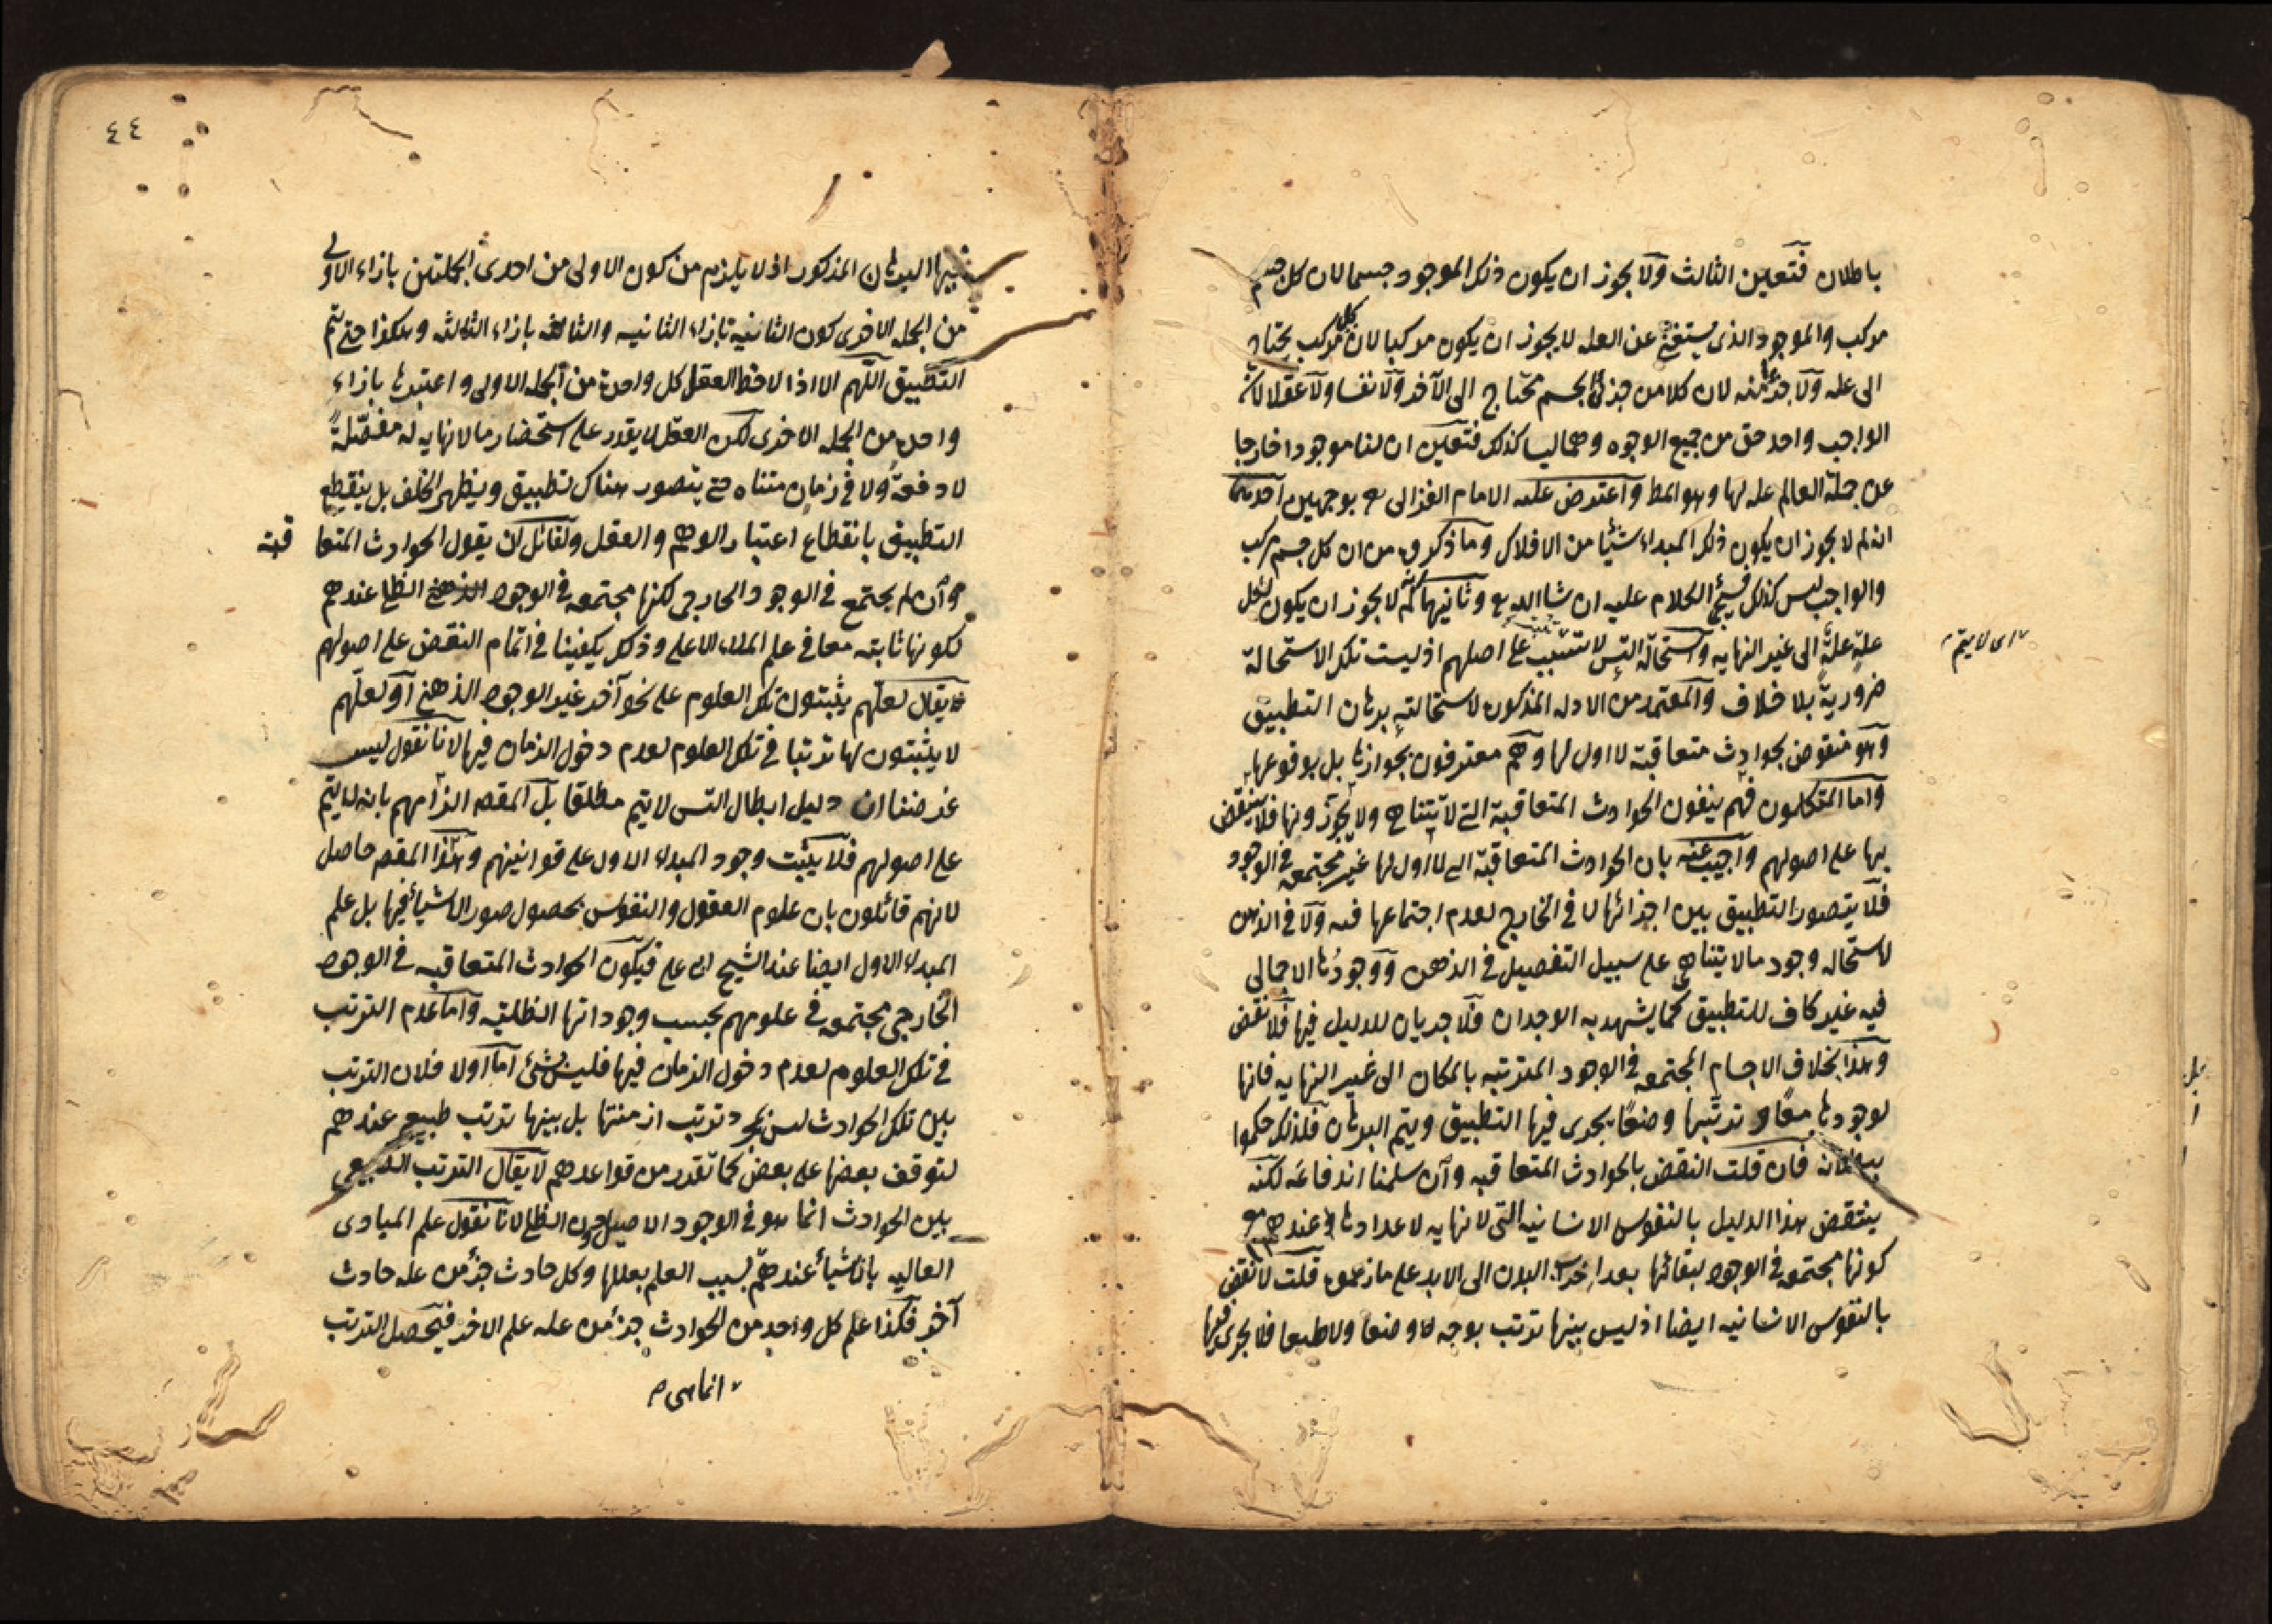 باطلان فتعين الثالث ولا يجوز ان يكون ذلك الموجود جسما لان كل جسم
مركب والموجود الذى يستغنى عن العله لا يجوز ان يكون مركبا لان كل مركب يحتاج
الى عله ولا جزء منه لان كلا من جزئى الجسم محتاج الى الآخر ولا نفسا ولا عقلا لانه
الواجب واحد حق من جميع الوجوه وهما ليسا كذلك فتعين ان لنا موجودا خارجا
عن جملة العالم عله لها وهو المط واعترض عليه الامام الغزالى بوجهين احدهما
انه لم لا يجوز ان يكون ذلك المبداء شيئا من الافلاك وما ذكروه من ان كل جسم مركب
والواجب ليس كذلك فسيجئ الكلام عليه ان شا الله تع وثانيهما انه لم لا يجوز ان يكون لكل
علة علة الى غير النهايه واستحالة التس لا تستتب على اصلهم اذ ليست تلك الاستحالة
اى لا يتم
ضرورية بلا خلاف والمعتمد من الادله المذكوره لاستحالته برهان التطبيق
وهو منقوض بحوادث متعاقبة لا اول لها وهم معترفون بجوازها بل بوقوعها
واما المتكلمون فهم ينفون الحوادث المتعاقبة التى لا تتناهى ولا يجوزونها فلا ينتقض
بها على اصولهم واجيب عنه بان الحوادث المتعاقبة التى لا اول لها غير مجتمعه فى الوجود
فلا يتصور التطبيق بين اجزائها لا فى الخارج لعدم اجتماعها فيه ولا فى الذهن
لاستحاله وجود ما لا يتناهى على سبيل التفصيل فى الذهن ووجودها الاجمالى
فيه غير كاف للتطبيق كما يشهد به الوجدان فلا جريان للدليل فيها فلا نقض
وهذا بخلاف الاجسام المجتمعه فى الوجود المترتبه بالمكان الى غير النهايه فانها
لوجودها معا وترتبها وضعا يجرى فيها التطبيق ويتم البرهان فلذلك حكموا
ببطلانه فان قلت النقض بالحوادث المتعاقبه وان سلمنا اندفاعه لكنه
ينتقض هذا الدليل بالنفوس الانسانيه التى لا نهايه لاعدادها عندهم مع
كونها مجتمعه فى الوجود لبقائها بعد خراب البدن الى الابد على ما زعموه قلت لا نقض
بالنفوس الانسانيه ايضا اذ ليس بينها ترتب بوجه لا وضعا ولا طبعا فلا يجرى فيها
٤٤
فيها البرهان المذكور اذ لا يلزم من كون الاولى من احدى الجملتين بازاء الاولى
من الجمله الاخرى كون الثانيه بازاء الثانيه والثالثه بازاء الثالثه وهكذا حتى يتم
التطبيق اللهم الا اذا لاحظ العقل كل واحدة من الجمله الاولى واعتبرها بازاء
واحده من الجمله الاخرى لكن العقل لا يقدر على استحضار ما لا نهايه له مفصلة
لا دفعة ولا فى زمان متناه حتى يتصور هناك تطبيق ويظهر الخلف بل ينقطع
التطبيق بانقطاع اعتبار الوهم والعقل ولقائل ان يقول الحوادث المتعاقبة
وان لم يجتمع فى الوجود الخارجى لكنها مجتمعه فى الوجود الظلى عندهم
لكونها ثابته معا فى علم الملاء الاعلى وذلك يكفينا فى اتمام النقض على اصولهم
لا يقال لعلهم يثبتون تلك العلوم على نحو آخر غير الوجود الذهنى او لعلهم
لا يثبتون لها ترتبا فى تلك العلوم لعدم دخول الزمان فيها لانا نقول ليس
غرضنا ان دليل ابطال التس لا يتم مطلقا بل المقصد الزامهم بانه لا يتم
على اصولهم فلا يثبت وجود المبداء الاول على قوانينهم وهذا المقصد حاصل
لانهم قائلون بان علوم العقول والنفوس بحصول صور الاشياء فيها بل علم
المبداء الاول ايضا عند الشيخ ابى على فيكون الحوادث المتعاقبه فى الوجود
الخارجى مجتمعه فى علومهم بحسب وجوداتها الظليه واما عدم الترتب
فى تلك العلوم لعدم دخول الزمان فيها فليس بشئ اما اولا فلان الترتب
بين تلك الحوادث ليس بمجرد ترتب ازمنتها بل بينها ترتب طبيعى عندهم
لتوقف بعضها على بعض كما تقرر من قواعدهم لا يقال الترتب الطبيعى
بين الحوادث انما هو فى الوجود الاصيل دون الظلى لانا نقول علم المبادى
العاليه بالاشياء عندهم بسبب العلم بعللها وكل حادث جزء من عله حادث
آخر فكذا علم كل واحد من الحوادث جزء من عله علم الاخر فيحصل الترتب
انما هى